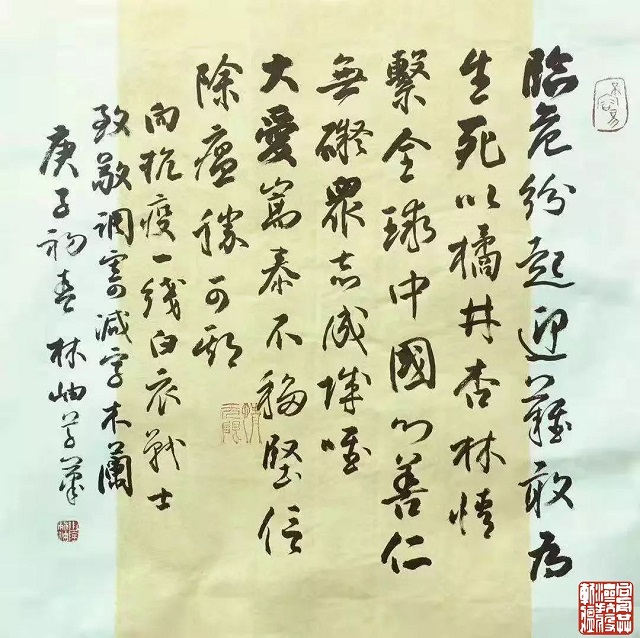 臨危紛起迎難敢為
生死以橘井杏林情
繫全球中國心善仁
無礙眾志成城唯
大愛嵩泰不移堅信
除瘟勝可期
向抗疫一线白衣戰士
致敬調寄減字木蘭
庚子初春 林岫